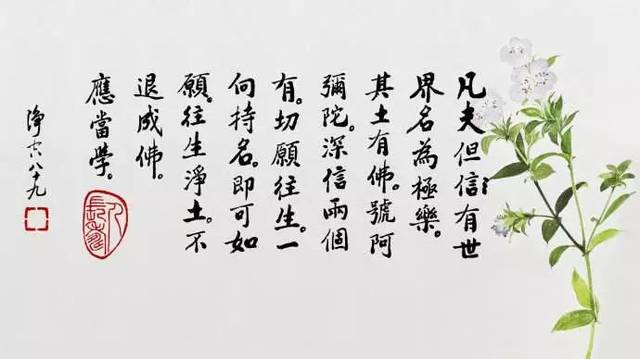 凡夫但信有世
界名為極樂。
其土有佛。號阿
彌陀。深信兩個
有。切願往生。一
向持名。即可如
願。往生淨土。不
退成佛。
應當學。
淨空八十九